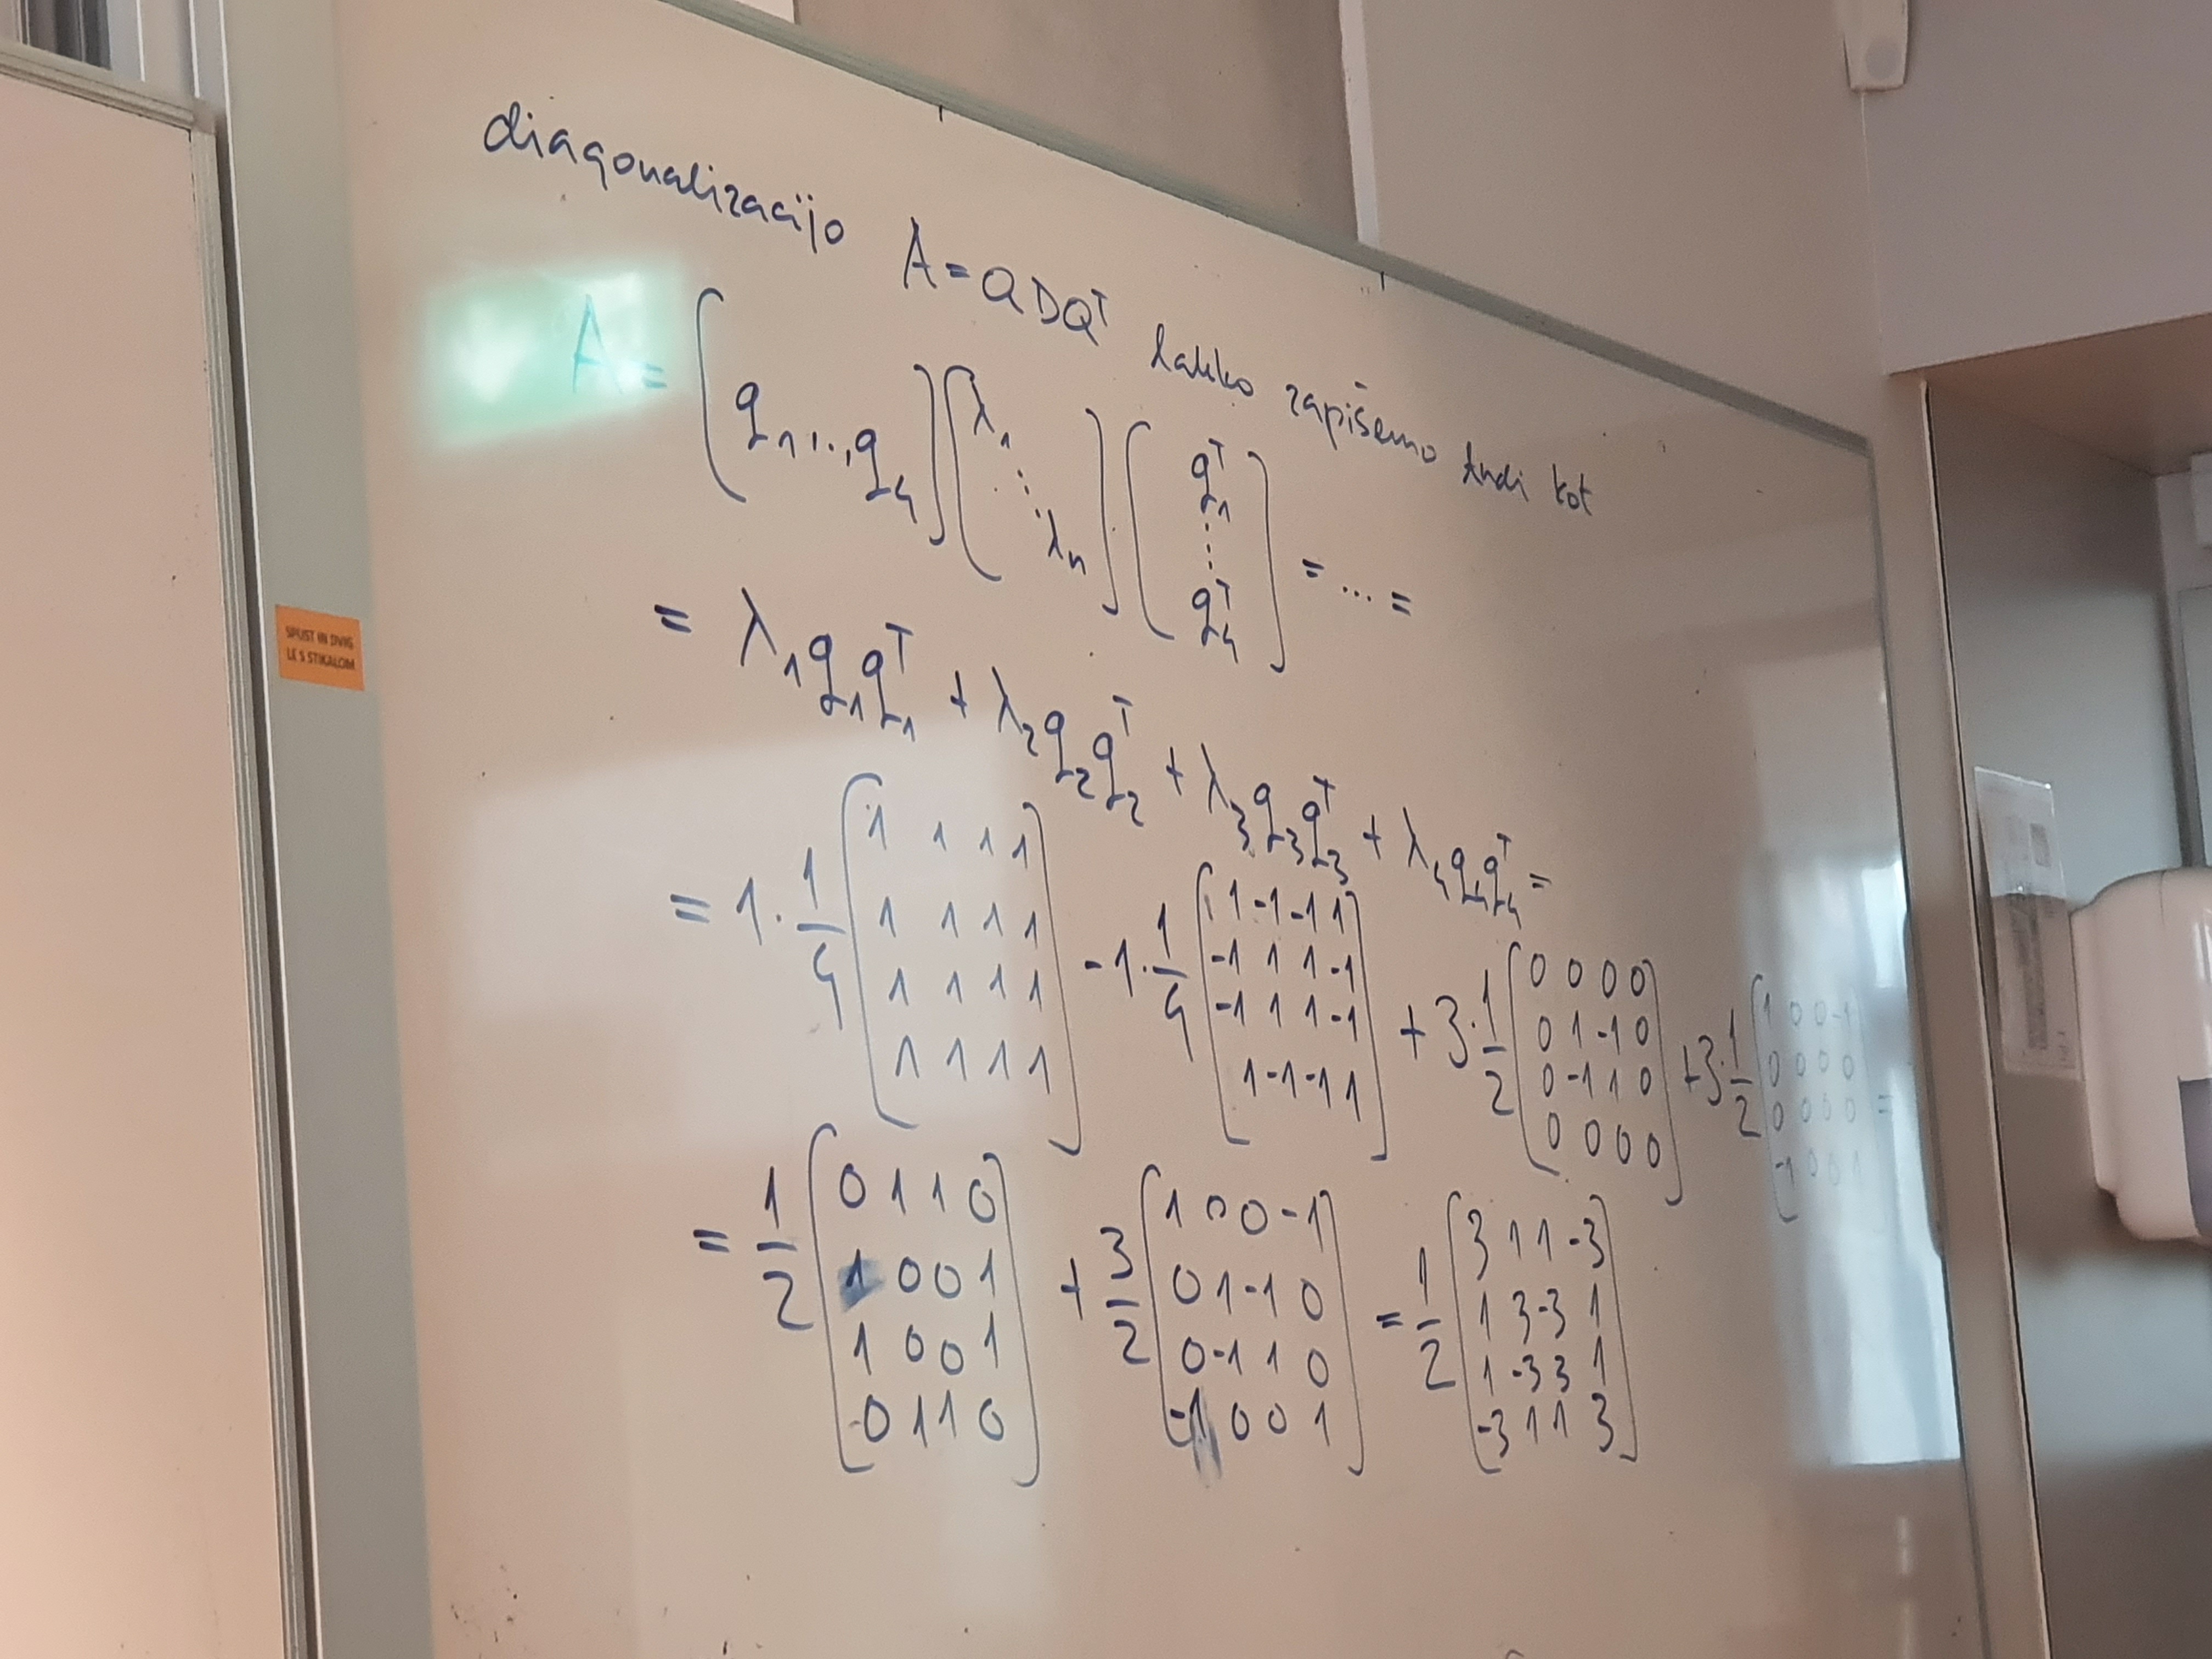 diagonalizacijo A = QDQᵀ lahko zapišemo tudi kot
A = [q₁,...,q₄] [λ₁ ⋱ λₙ] [q₁ᵀ ⋮ q₄ᵀ] = ... =
= λ₁q₁q₁ᵀ + λ₂q₂q₂ᵀ + λ₃q₃q₃ᵀ + λ₄q₄q₄ᵀ =
= 1·1/4 [1 1 1 1; 1 1 1 1; 1 1 1 1; 1 1 1 1] -1·1/4 [1 -1 -1 1; -1 1 1 -1; -1 1 1 -1; 1 -1 -1 1] + 3·1/2 [0 0 0 0; 0 1 -1 0; 0 -1 1 0; 0 0 0 0] + 3·1/2 [1 0 0 -1; 0 0 0 0; 0 0 0 0; -1 0 0 1] =
= 1/2 [0 1 1 0; 1 0 0 1; 1 0 0 1; 0 1 1 0] + 3/2 [1 0 0 -1; 0 1 -1 0; 0 -1 1 0; -1 0 0 1] = 1/2 [3 1 1 -3; 1 3 -3 1; 1 -3 3 1; -3 1 1 3]
SPUST IN DVIG
LE S STIKALOM